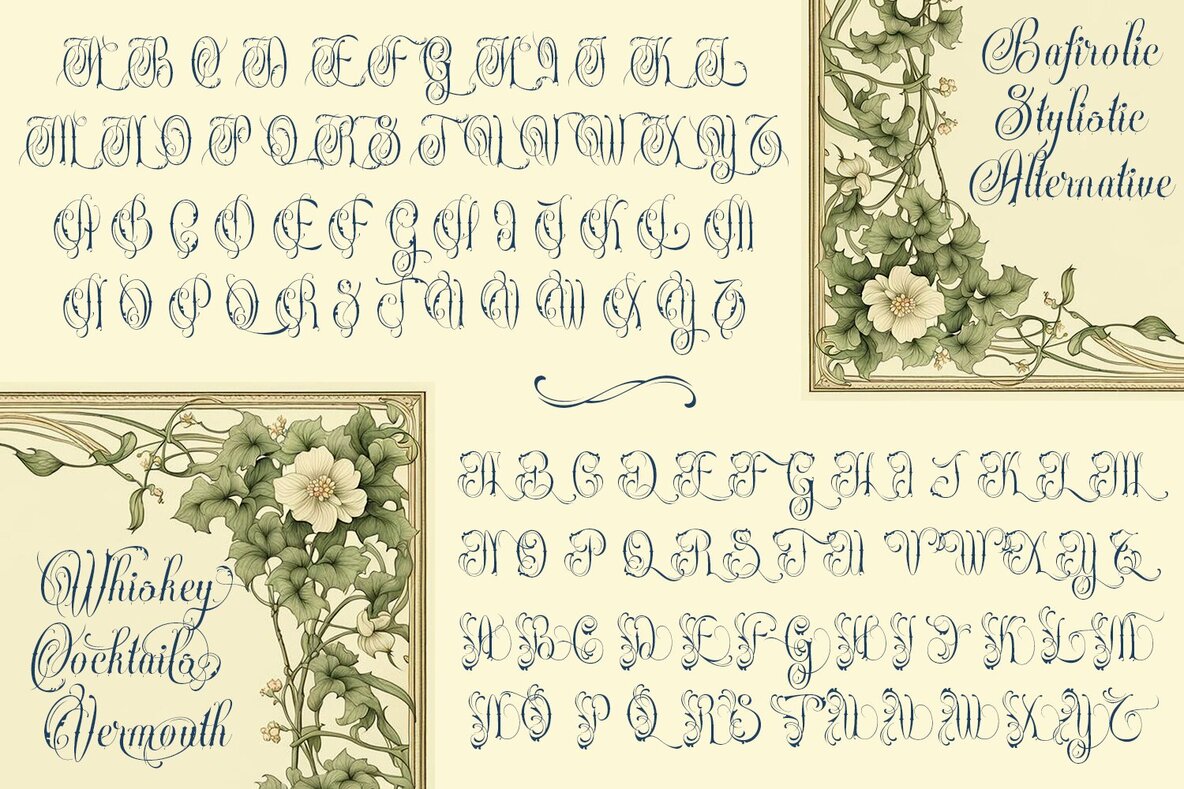 A B C D E F G H I J K L
M N O P Q R S T U V W X Y Z
A B C D E F G H I J K L M
N O P Q R S T U V W X Y Z
Bafirolic
Stylistic
Alternative
Whiskey
Cocktails
Vermouth
A B C D E F G H I J K L M
N O P Q R S T U V W X Y Z
A B C D E F G H I J K L M
N O P Q R S T U V W X Y Z